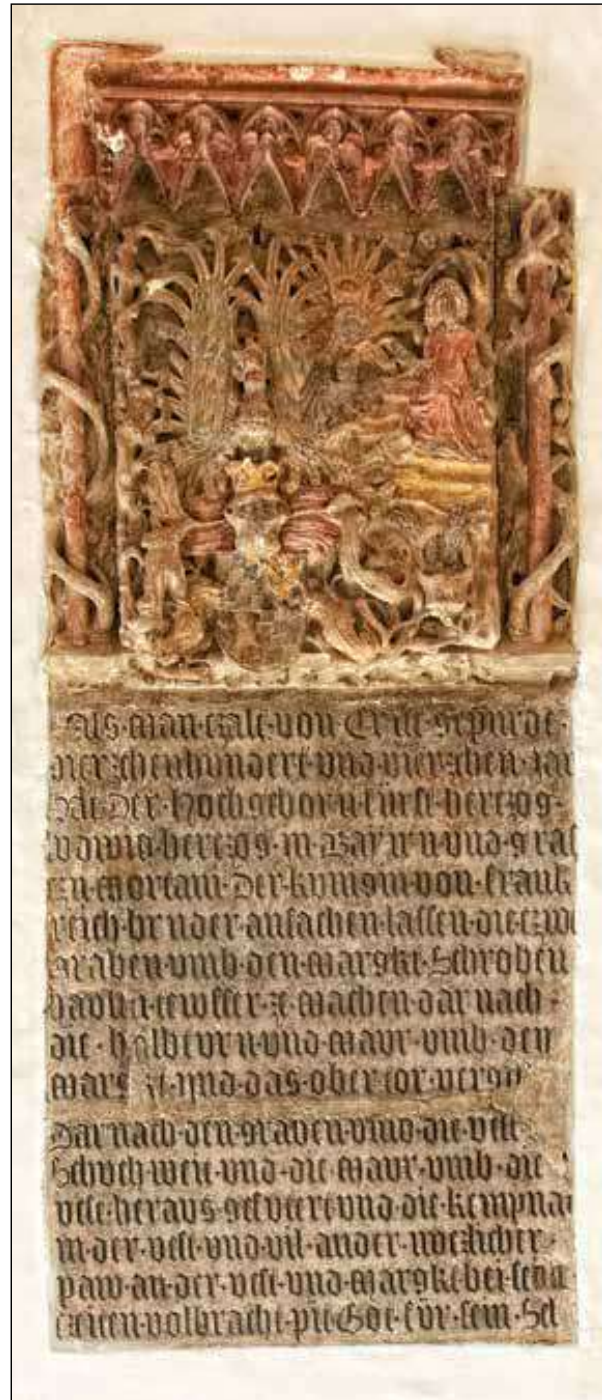 Als · man · czalt · von · Crist · gepurde ·
vierzehenhundert · und · vierzehen · Jar
hat · Der · Hochgeborn · fürst · herczog ·
Ludwig · herczog · in · Bayrn · und · graf
zu · Mortani · Der · kunigin · von · frank
reich · bruder · anfachen · lassen · die · czwe
graben · umb · den · margkt · Schroben
ze · machen · dar nach ·
die · halbturn · und · maur · umb · den
und · das · ober · tor ·
Darnach · den · graben · umb · die · vest
Schuch · weit · und · die · maur · umb · die
vest · heraus · gefuetert · und · die · kempna
in · der · vest · und · vil · ander · nuczlicher ·
paw · an · der · vest · und · margkt · bei · sein
czeiten · volbracht · pit · Got · für · sein · Sel